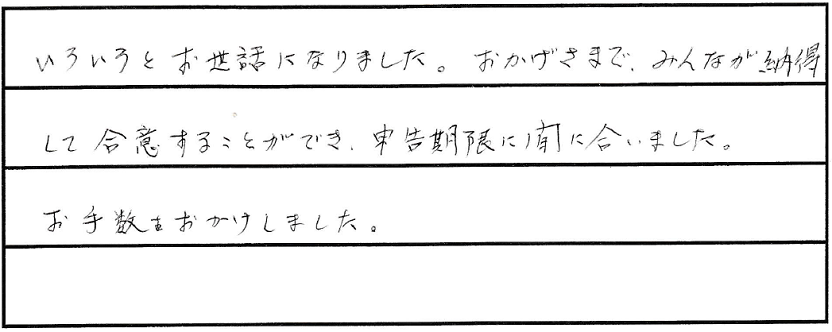 いろいろとお世話になりました。おかげさまで、みんなが納得
して合意することができ、申告期限に間に合いました。
お手数をおかけしました。